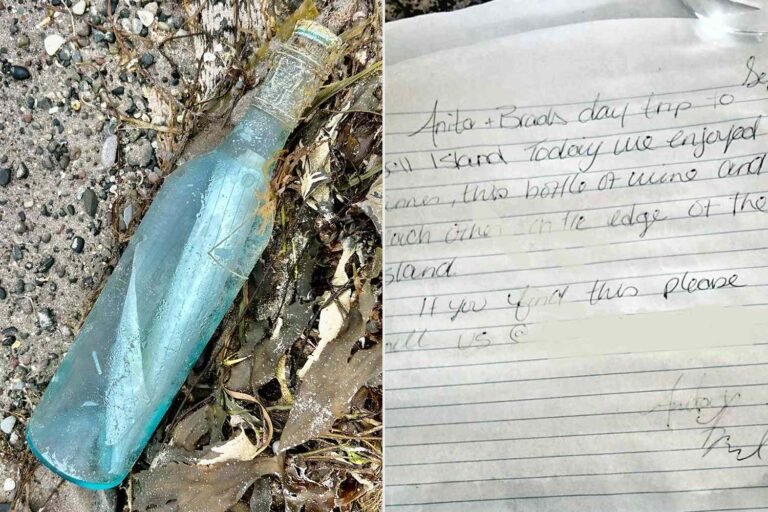 Se
Anita + Brads day trip to
ill Island Today we enjoyed
this bottle of wine and
each other on the edge of the
sland.
If you find this please
us @
Anita